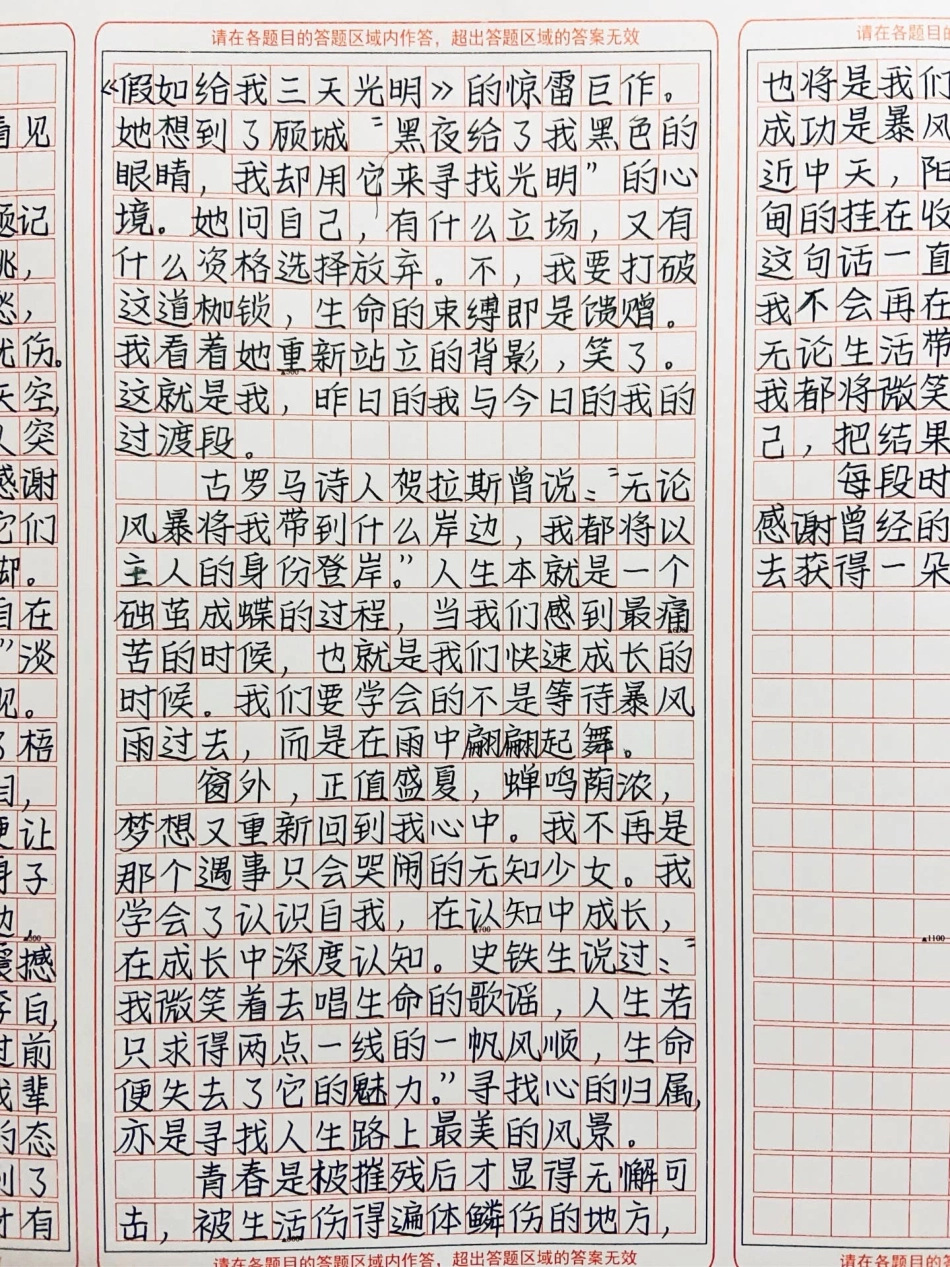 请在各题目的答题区域内作答，超出答题区域的答案无效
看见
题记
伤。
天空,
突
感谢
它们
自在
”淡
见。
梧
便让
身子
边,
震撼
过前
我辈
的态
到了
有
《假如给我三天光明》的惊雷巨作。
她想到了顾城“黑夜给了我黑色的
眼睛，我却用它来寻找光明”的心
境。她问自己，有什么立场，又有
什么资格选择放弃。不，我要打破
这道枷锁，生命的束缚即是馈赠。
我看着她重新站立的背影，笑了。
这就是我，昨日的我与今日的我的
过渡段。
古罗马诗人贺拉斯曾说：“无论
风暴将我带到什么岸边，我都将以
主人的身份登岸。”人生本就是一个
础茧成蝶的过程，当我们感到最痛
苦的时候，也就是我们快速成长的
时候。我们要学会的不是等待暴风
雨过去，而是在雨中翩翩起舞。
窗外，正值盛夏，蝉鸣荫浓，
梦想又重新回到我心中。我不再是
那个遇事只会哭闹的无知少女。我
学会了认识自我，在认知中成长，
在成长中深度认知。史铁生说过：“
我微笑着去唱生命的歌谣，人生若
只求得两点一线的一帆风顺，生命
便失去了它的魅力。”寻找心的归属，
亦是寻找人生路上最美的风景。
青春是被摧残后才显得无懈可
击，被生活伤得遍体鳞伤的地方，
请在各题目的答题区域内作答，超出答题区域的答案无效
请在各题目的
也将是我们
成功是暴风
近中天，阳
甸的挂在收
这句话一直
我不会再在
无论生活带
我都将微笑
己，把结果
每段时
感谢曾经的
去获得一朵
▲1100
请在各题目的